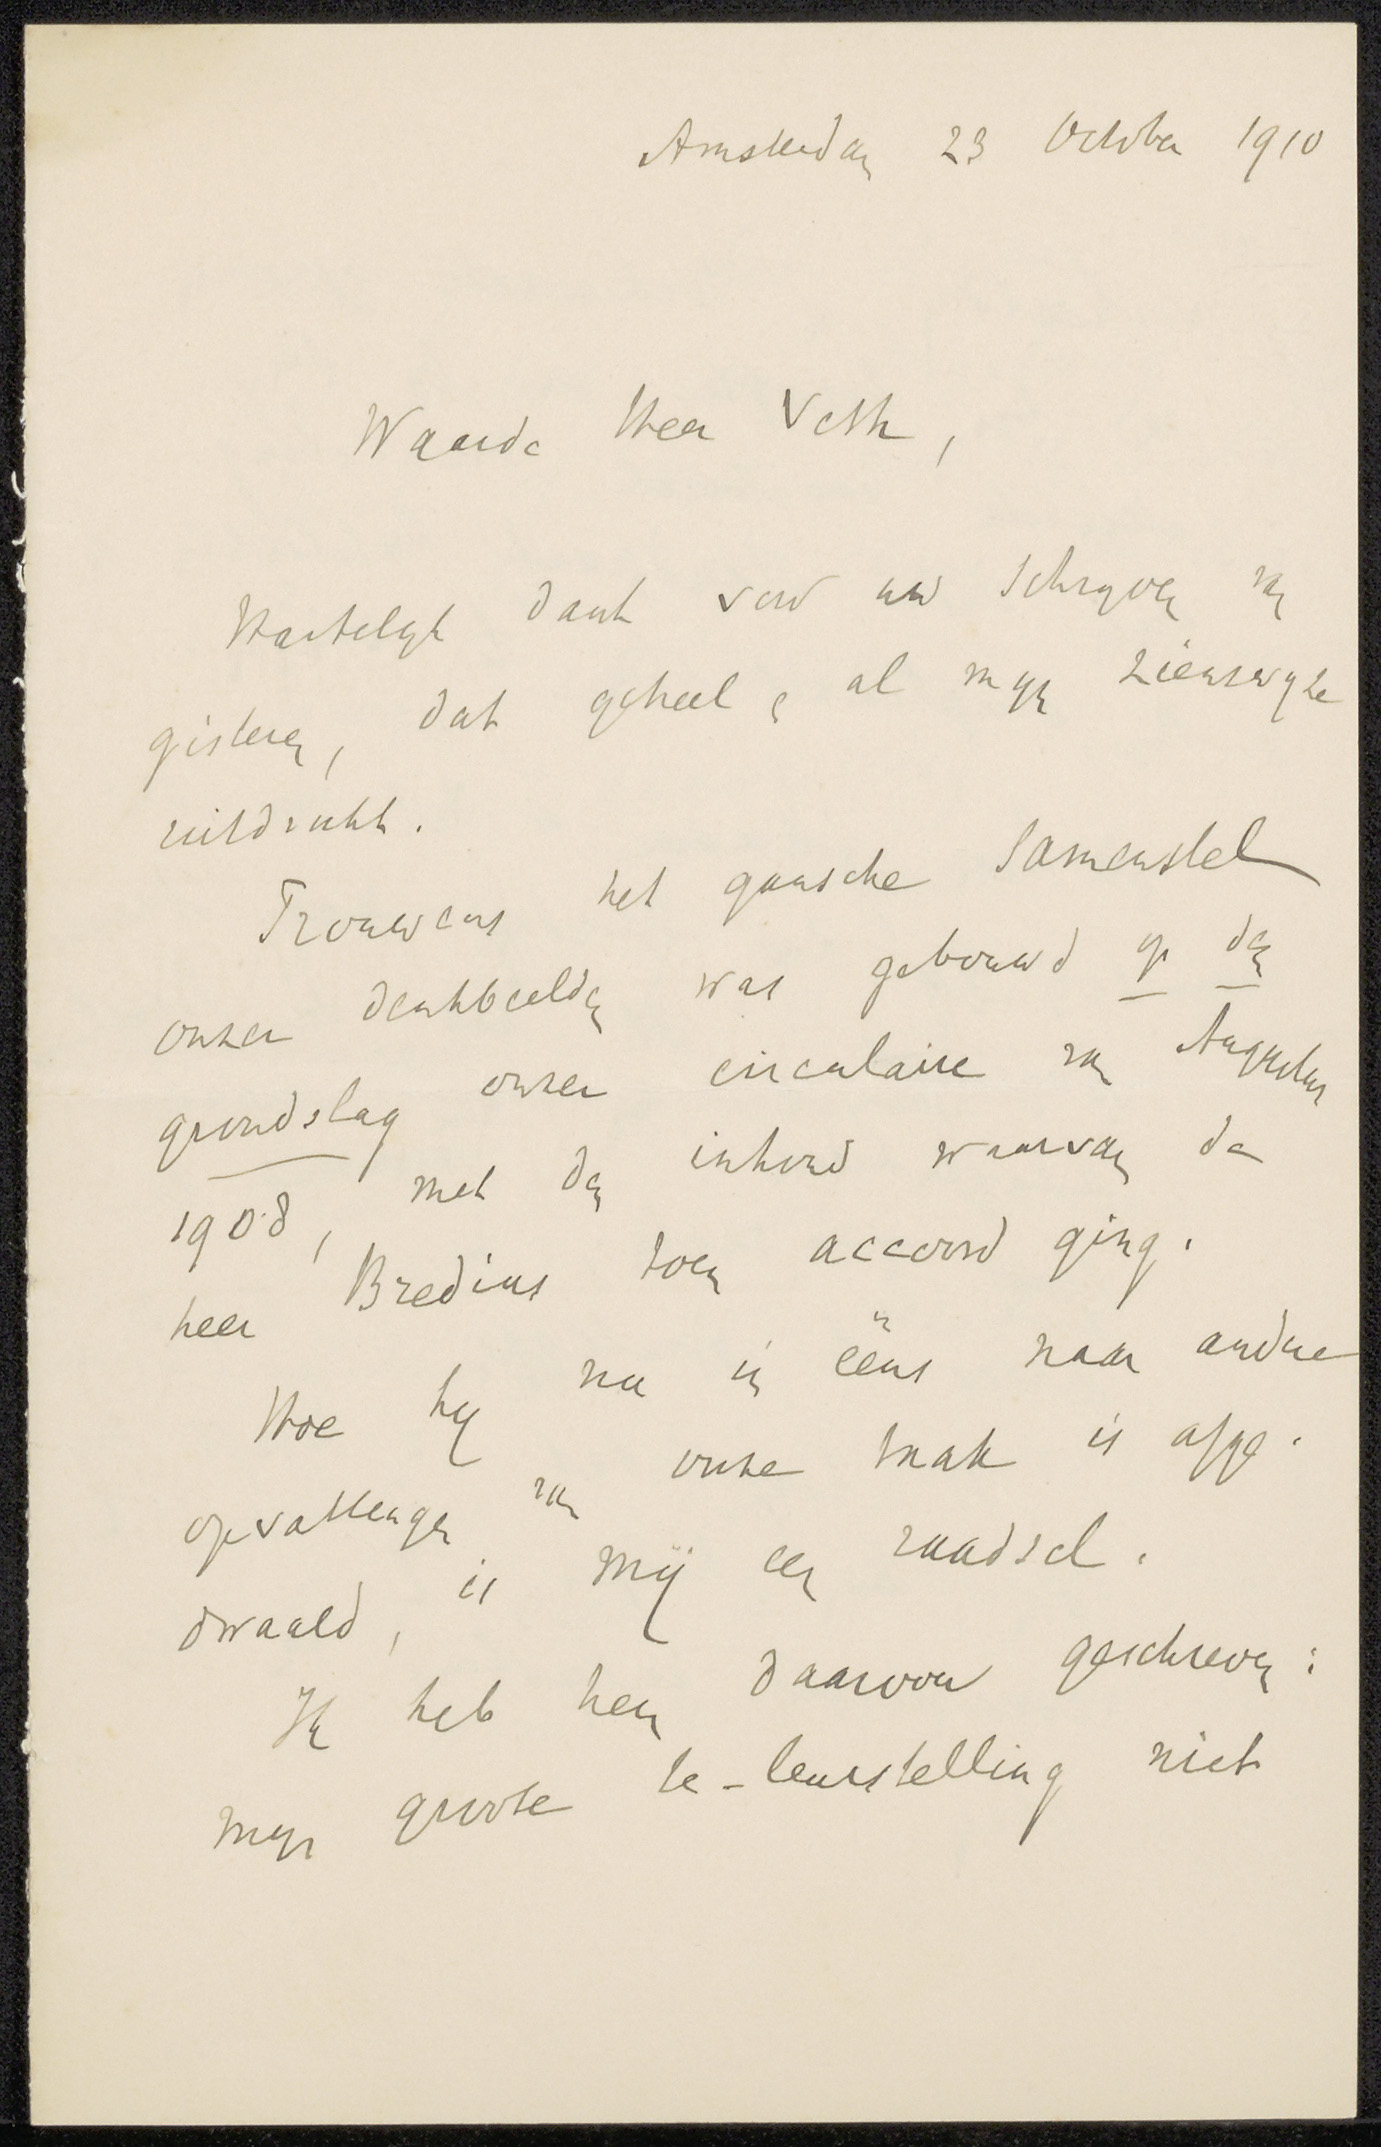 Amsterdam 23 October 1910
Waarde Heer Veth,
Hartelyk dank voor uw schryven van
gisteren, dat geheel & al myn zienswyze
uitdrukt.
Trouwens het gansche samenstel
onzer denkbeelden was gebouwd op den
grondslag onzer circulaire van Augustus
1908, met den inhoud waarvan de
heer Bredius toen accoord ging.
Hoe hy nu in ééns naar andere
opvattingen van onze taak is afge-
dwaald, is mij een raadsel.
Ik heb hem daarover geschreven:
myn groote te-leurstelling niet